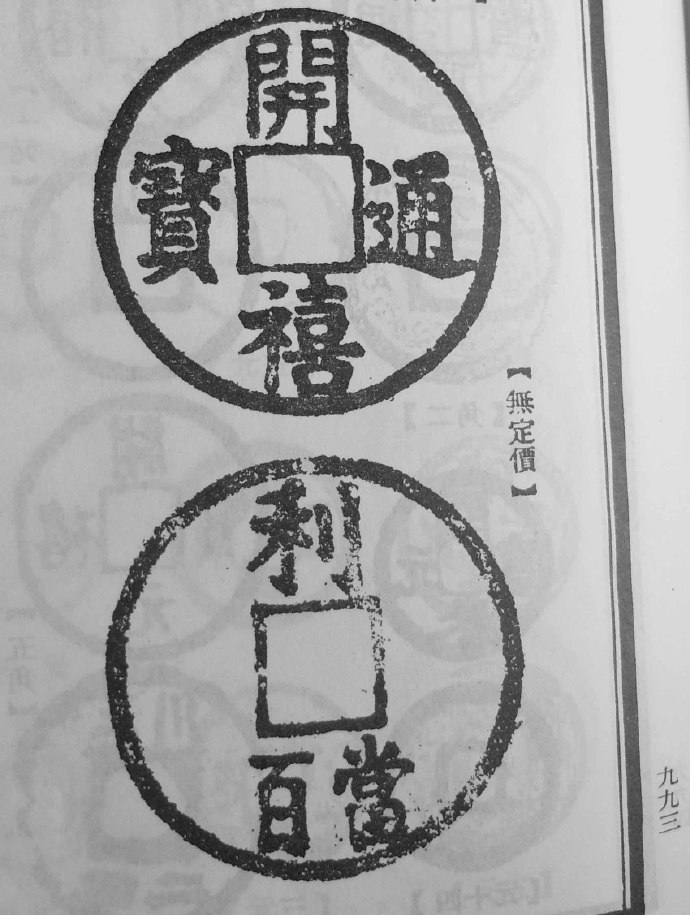 開禧通寶
【無定價】
利
當百
九九三